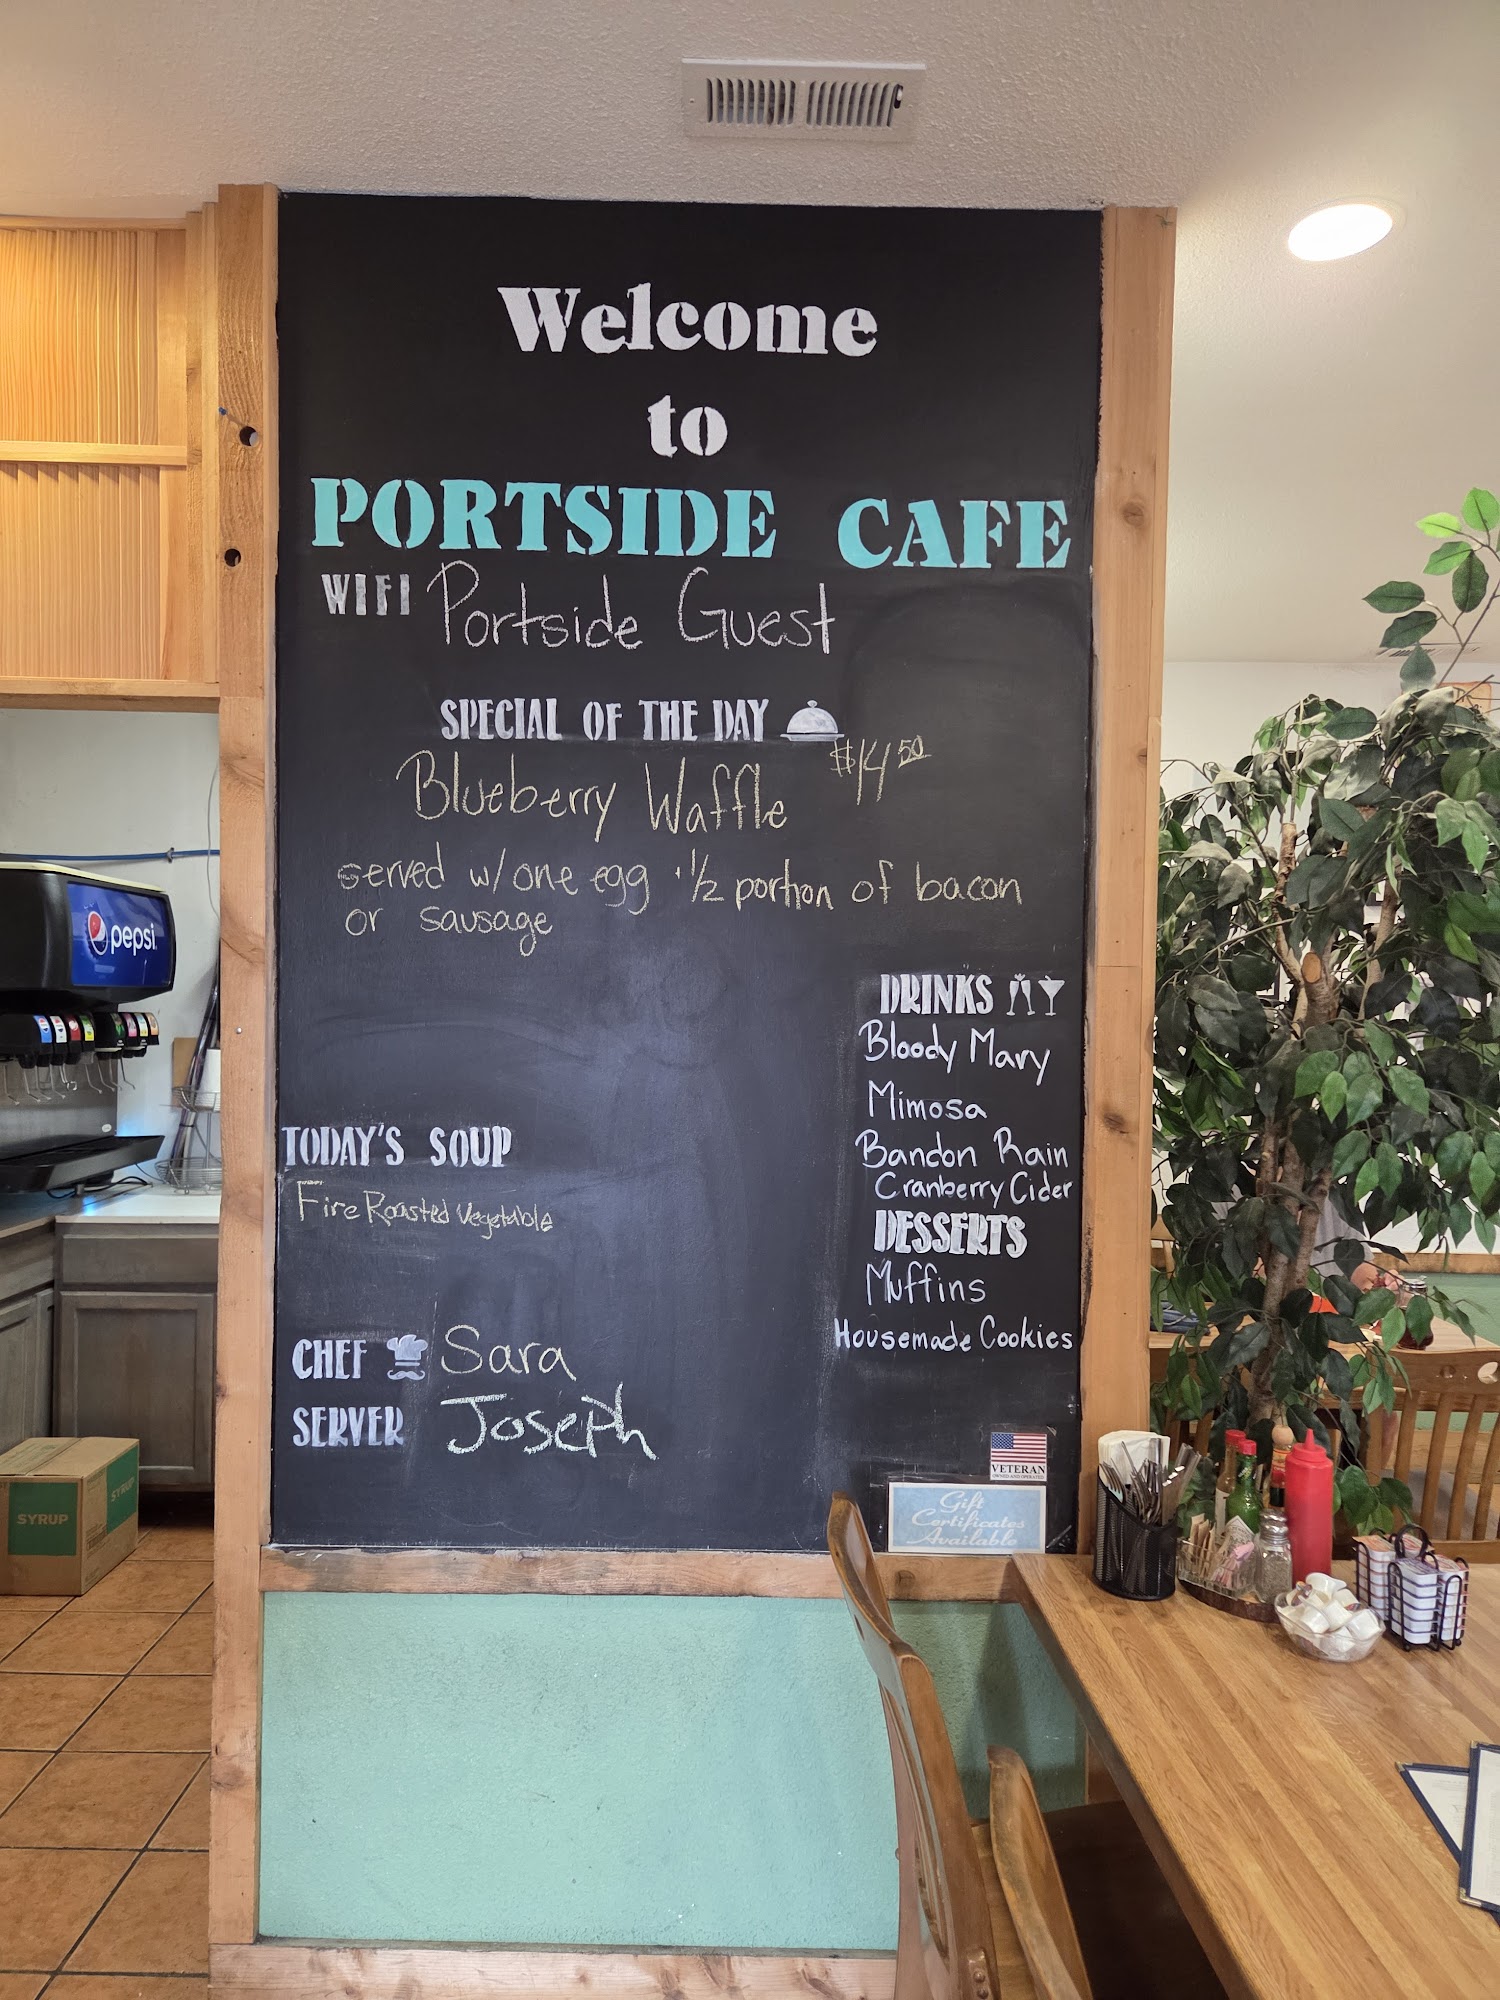 Welcome
to
PORTSIDE CAFE
WIFI Portside Guest
SPECIAL OF THE DAY
Blueberry Waffle $14 50
served w/ one egg + 1/2 portion of bacon
or sausage
DRINKS
Bloody Mary
Mimosa
Bandon Rain
Cranberry Cider
DESSERTS
Muffins
Housemade Cookies
TODAY'S SOUP
Fire Roasted Vegetable
CHEF Sara
SERVER Joseph
VETERAN
OWNED AND OPERATED
Gift
Certificates
Available
pepsi
SYRUP